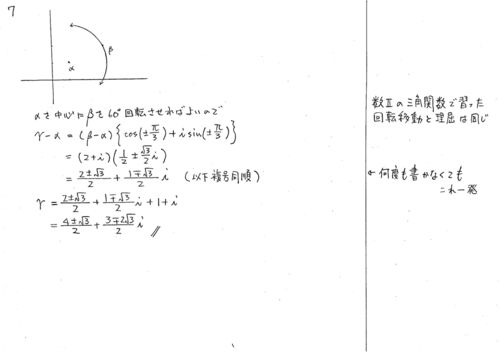 7
β
α
αを中心にβを60°回転させればよいので
γ-α = (β-α){cos(±π/3)+i sin(±π/3)}
= (2+i)(1/2 ± √3/2 i)
= 2±√3/2 + 1∓√3/2 i (以下複号同順)
γ = 2±√3/2 + 1∓√3/2 i + 1 + i
= 4±√3/2 + 3∓2√3/2 i
数Ⅱの三角関数で習った
回転移動と理屈は同じ
← 何度も書かなくても
これ一発